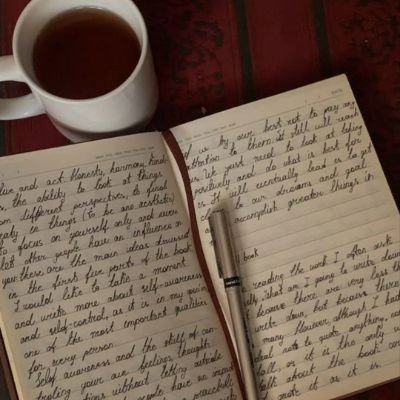 lue and act. Honesty, harmony, kind-
s, the ability to look at things
om different perspectives, to find
eauty in things (to be aesthetic)
to focus on yourself only and never
let other people have an influence on
you: these are the main ideas discussed
in the first few parts of the book
I would like to take a moment
and write more about self-awareness
and self-control, as it is in my opinion
one of the most important qualities
for every person.
Self awareness and the skill of con-
troling your own feelings, thoughts
tions without letting outside
people have an impact
peacefull
d us by our best not to pay any
attention to them. It still will reach
us. We just need to look at things
positively and do what is best for
us. It will eventually lead us to get
close to our dreams and goals
and accomplish greater things in
book
reading the work I often ask
ally, What am I going to write down
because there are very less th
write down, but because there
many. However, although I had
deal not to quote anything,
all, as it is the only w
talk about the book
note it as it is